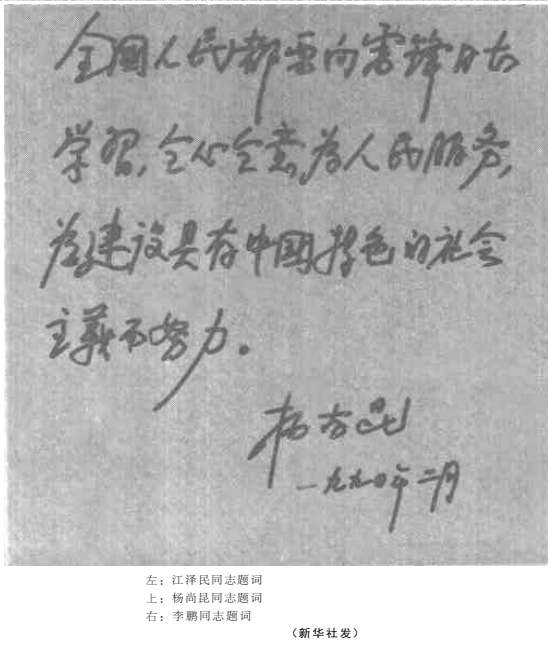 全國人民都要向雷锋同志
学習,全心全意为人民服务,
为建设具有中國特色的社会
主義而努力。
杨尚昆
一九九〇年二月
左：江泽民同志题词
上：杨尚昆同志题词
右：李鹏同志题词
（新华社发）